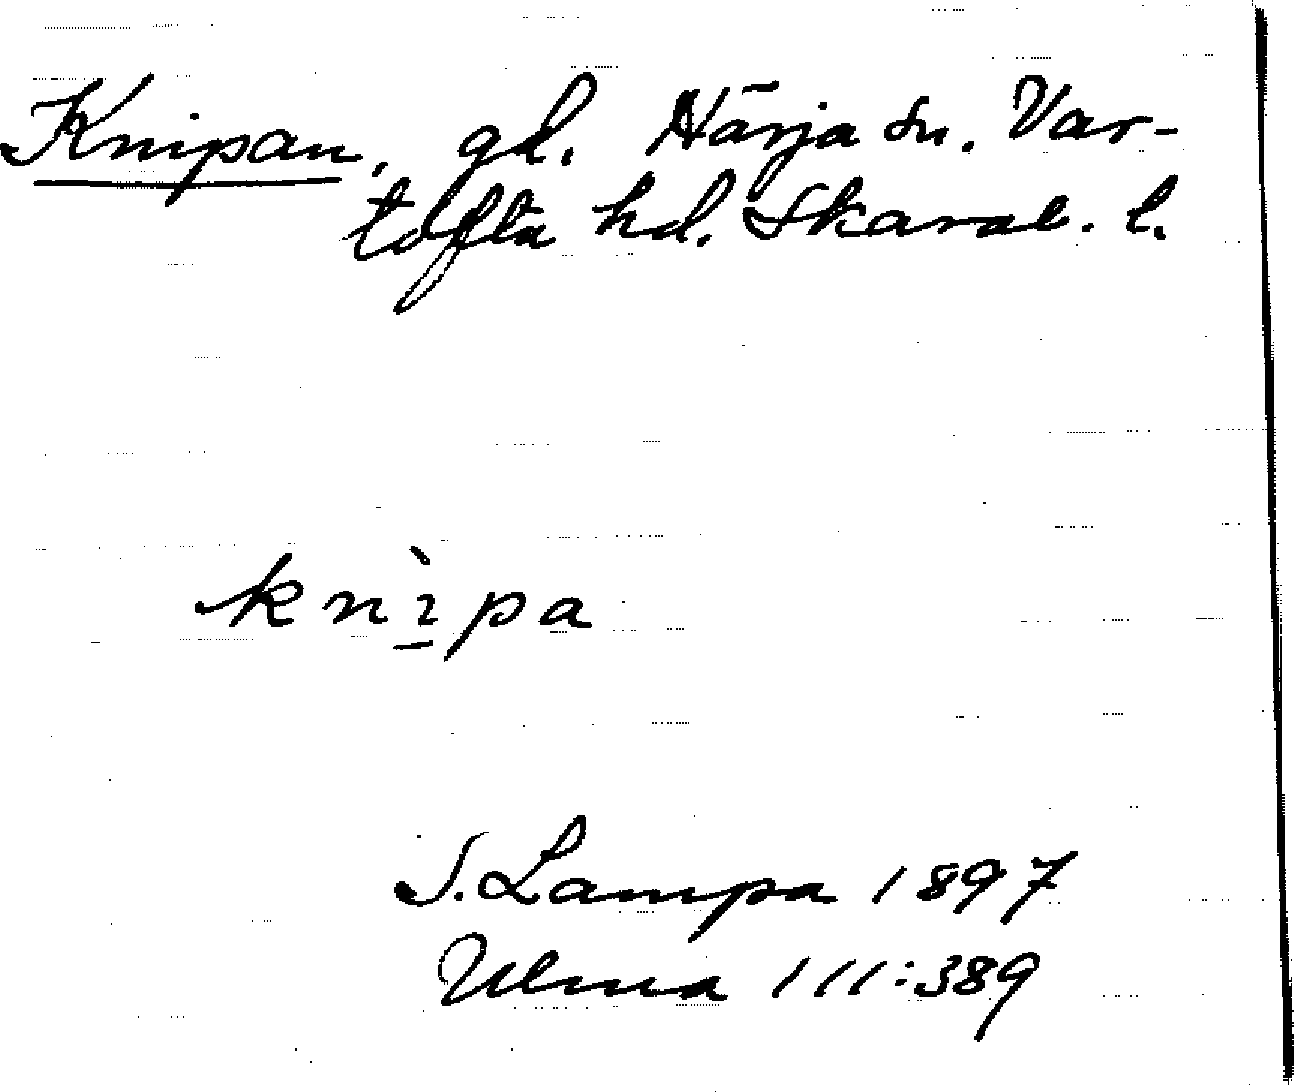 Knipan, gd. Härja sn. Var-
tofta hd. Skarab. l.
knìpa
S. Lampa 1897
Ulma 111:389